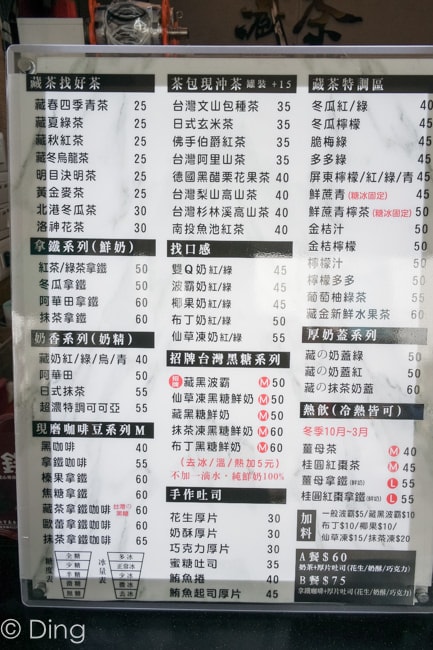 藏茶
藏茶找好茶
藏春四季青茶 25
藏夏綠茶 25
藏秋紅茶 25
藏冬烏龍茶 25
明目決明茶 25
黃金麥茶 25
北港冬瓜茶 30
洛神花茶 30
拿鐵系列(鮮奶)
紅茶/綠茶拿鐵 50
冬瓜拿鐵 50
阿華田拿鐵 60
抹茶拿鐵 50
奶香系列(奶精)
藏奶紅/綠/烏/青 40
阿華田 50
日式抹茶 55
超濃特調可可亞 55
現磨咖啡豆系列 M
黑咖啡 40
拿鐵咖啡 55
榛果拿鐵 60
焦糖拿鐵 60
藏茶拿鐵咖啡 台灣の黑糖 60
歐蕾拿鐵咖啡 60
抹茶拿鐵咖啡 65
糖度表
全糖
少糖
半糖
微糖
無糖
冰量表
多冰
正常冰
少冰
微冰
去冰
茶包現沖茶 罐裝 +15
台灣文山包種茶 35
日式玄米茶 35
佛手伯爵紅茶 35
台灣阿里山茶 35
德國黑醋栗花果茶 40
台灣梨山高山茶 40
台灣杉林溪高山茶 40
南投魚池紅茶 40
找口感
雙Q奶紅/綠 45
波霸奶紅/綠 45
椰果奶紅/綠 45
布丁奶紅/綠 50
仙草凍奶紅/綠 55
招牌台灣黑糖系列
藏黑波霸 M 50
仙草凍黑糖鮮奶 M 50
藏黑糖鮮奶 M 50
抹茶凍黑糖鮮奶 M 60
布丁黑糖鮮奶 M 60
(去冰/溫/熱加5元)
不加一滴水、純鮮奶100%
手作吐司
花生厚片 30
奶酥厚片 30
巧克力厚片 30
蜜糖吐司 35
鮪魚捲 40
鮪魚起司厚片 45
藏茶特調區
冬瓜紅/綠 40
冬瓜檸檬
脆梅綠
多多綠
屏東檸檬/紅/綠/青 45
鮮蔗青(糖冰固定)
鮮蔗青檸茶(糖冰固定) 50
金桔汁
金桔檸檬
檸檬汁
檸檬多多
葡萄柚綠茶 55
藏金新鮮水果茶 60
厚奶蓋系列
藏の奶蓋綠 50
藏の奶蓋紅 50
藏の抹茶奶蓋 60
熱飲(冷熱皆可)
冬季10月~3月
薑母茶 M 40
桂圓紅棗茶 M 45
薑母拿鐵(鮮奶) L 55
桂圓紅棗拿鐵(鮮奶) L 55
加料
一般波霸$5/藏黑波霸$10
布丁$10/椰果$10/
仙草凍$15/抹茶凍$20
A餐$60
奶茶+厚片吐司(花生/奶酥/巧克力)
B餐$75
拿鐵咖啡+厚片吐司(花生/奶酥/巧克力)
© Ding